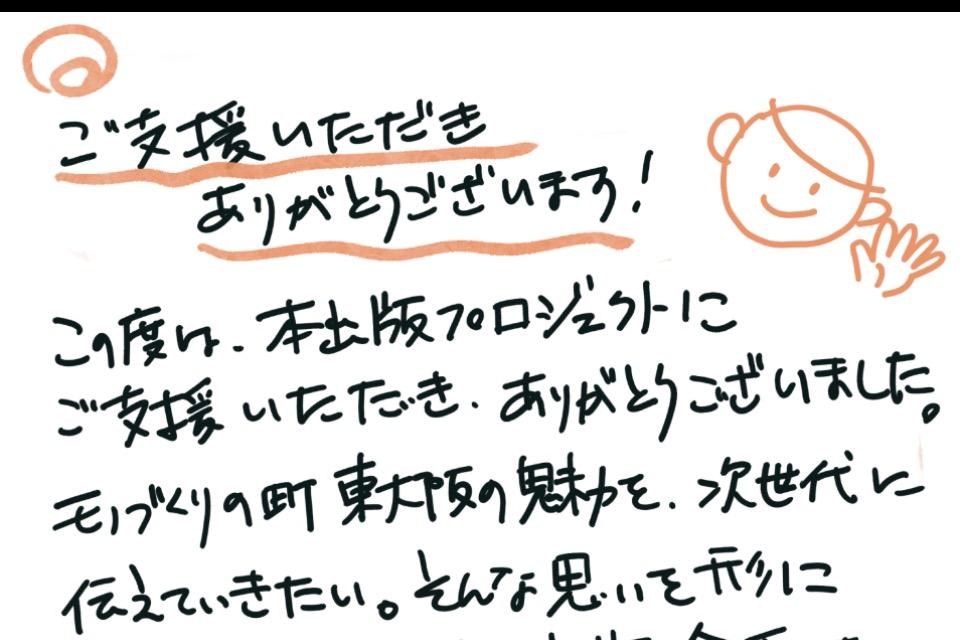 ご支援いただき
ありがとうございます!
この度は、本出版プロジェクトに
ご支援いただき、ありがとうございました。
モノづくりの町東大阪の魅力を、次世代に
伝えていきたい。そんな思いを形に